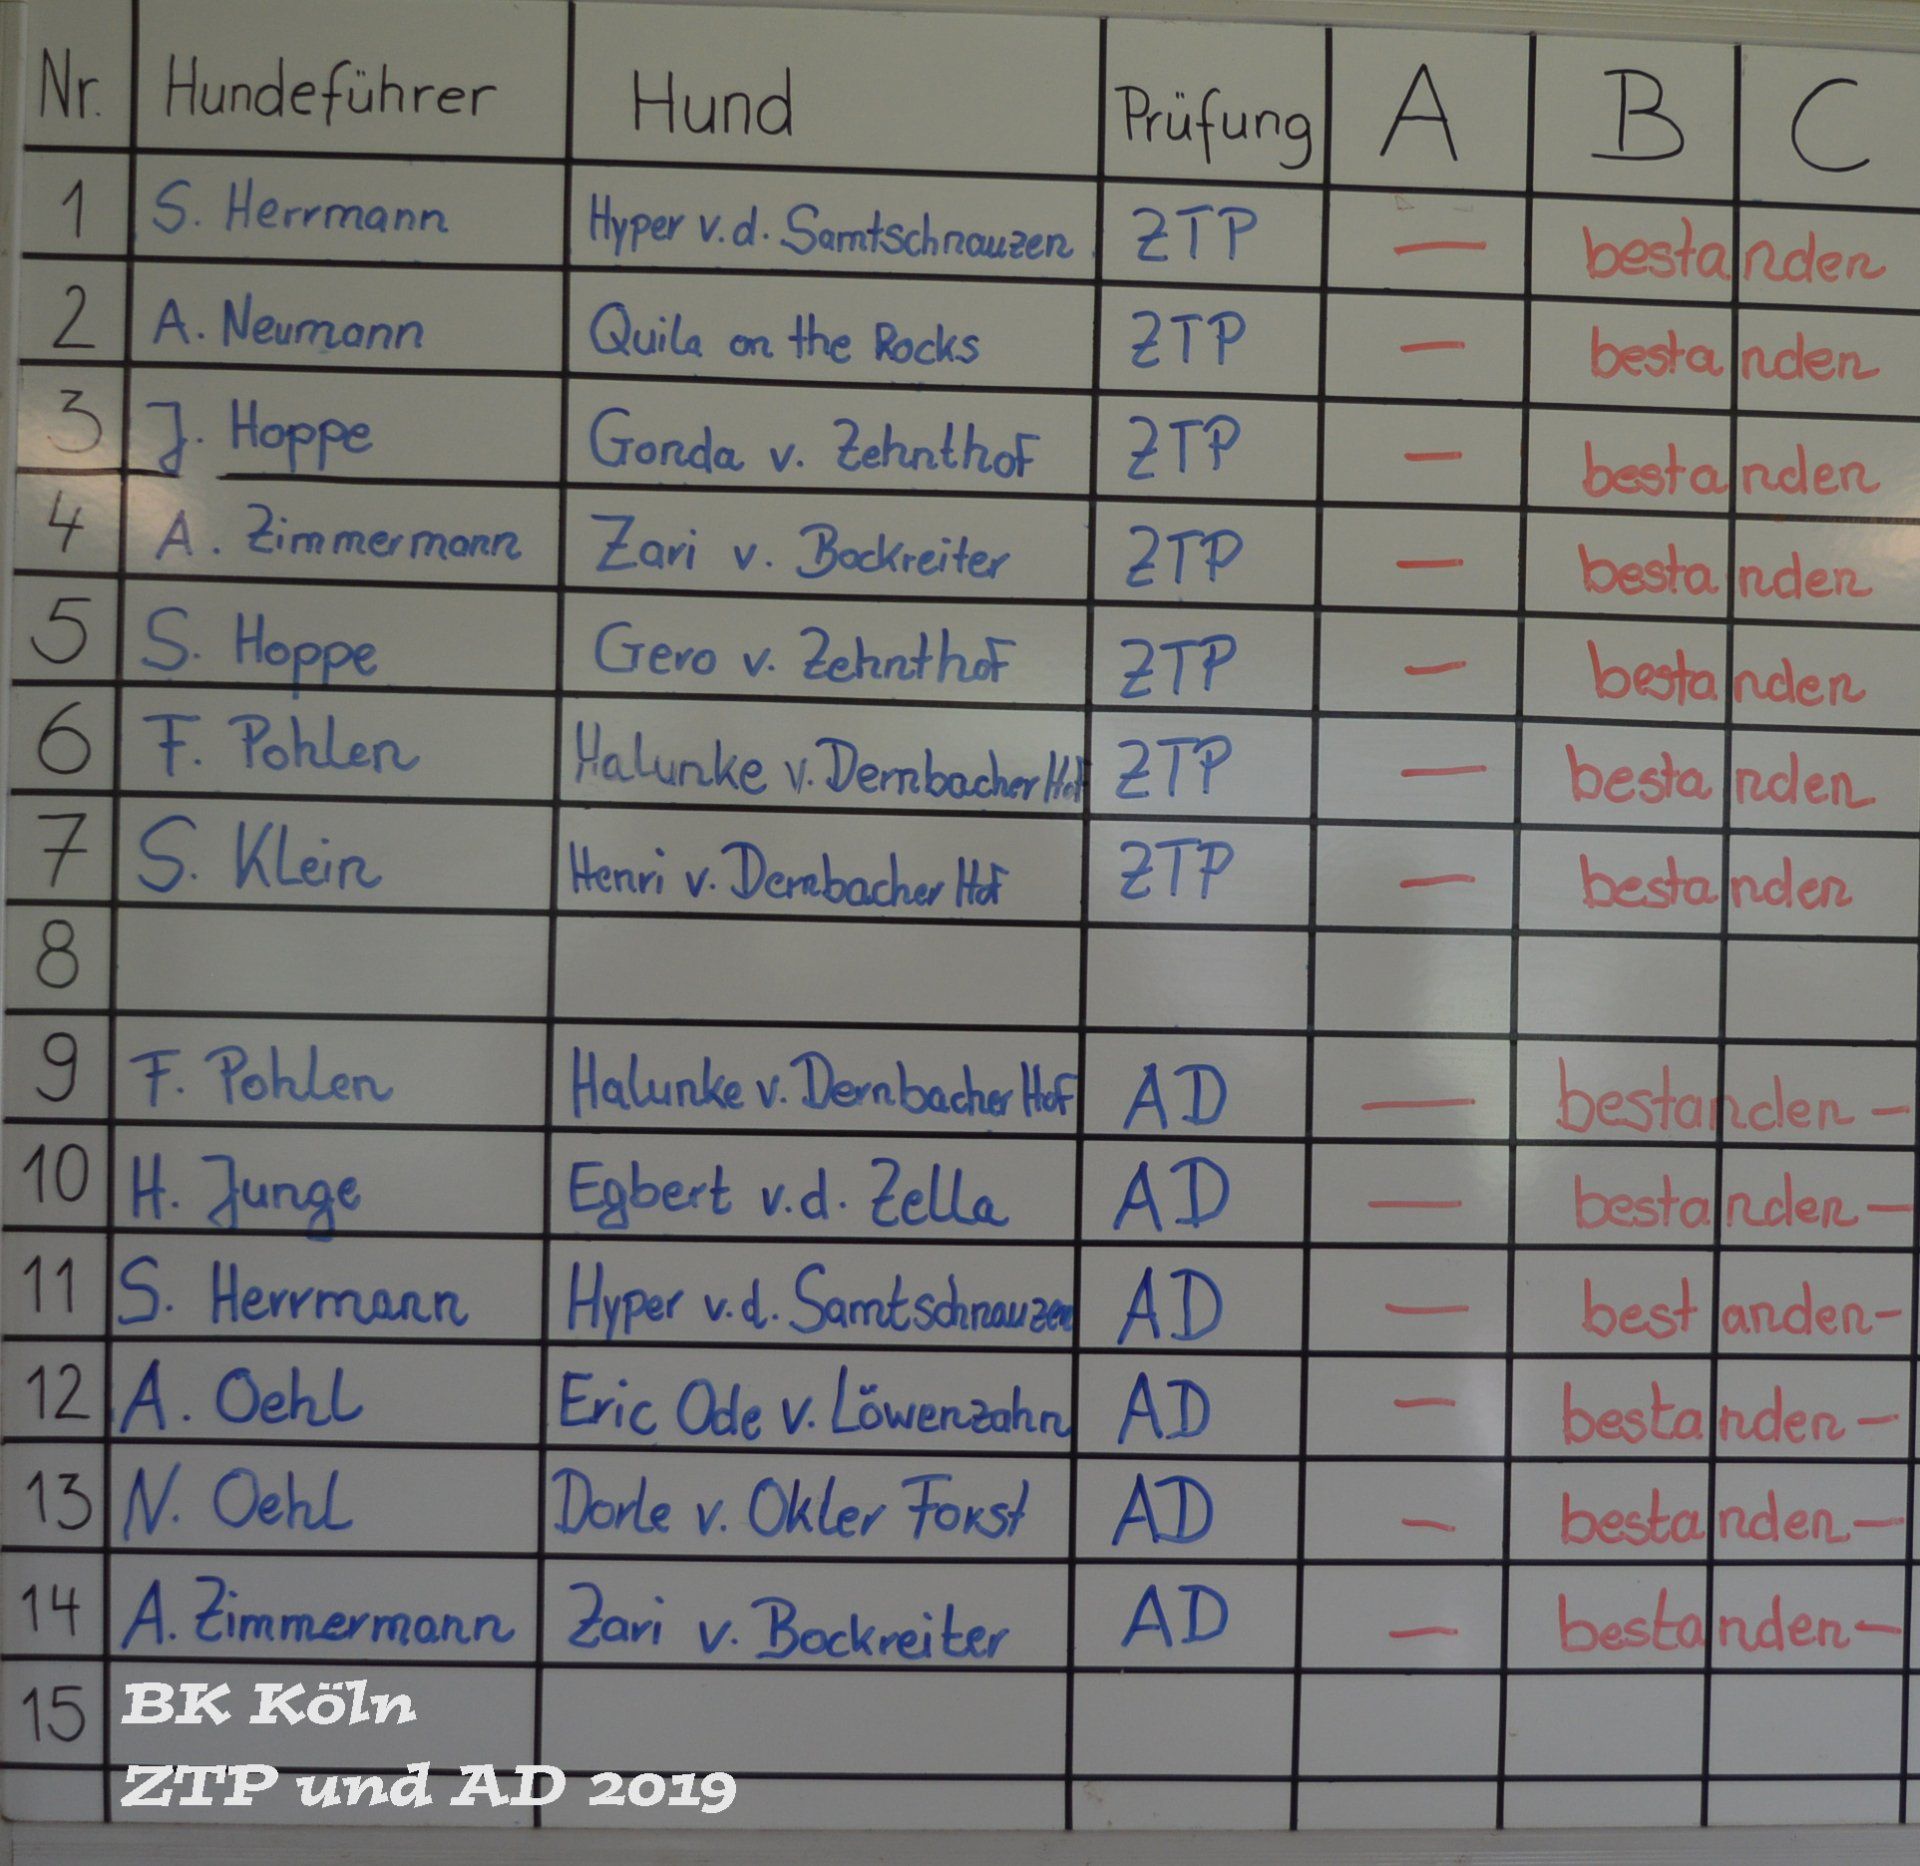 Nr. Hundeführer Hund Prüfung A B C
1 S. Herrmann Hyper v.d. Samtschnauzen ZTP — bestanden
2 A. Neumann Quila on the Rocks ZTP — bestanden
3 J. Hoppe Gonda v. Zehnthof ZTP — bestanden
4 A. Zimmermann Zari v. Bockreiter ZTP — bestanden
5 S. Hoppe Gero v. Zehnthof ZTP — bestanden
6 F. Pohlen Halunke v. Dernbacher Hof ZTP — bestanden
7 S. Klein Henri v. Dernbacher Hof ZTP — bestanden
8
9 F. Pohlen Halunke v. Dernbacher Hof AD — bestanden —
10 H. Junge Egbert v.d. Zella AD — bestanden —
11 S. Herrmann Hyper v.d. Samtschnauzen AD — bestanden —
12 A. Oehl Eric Ode v. Löwenzahn AD — bestanden —
13 N. Oehl Dorle v. Okler Forst AD — bestanden —
14 A. Zimmermann Zari v. Bockreiter AD — bestanden —
15 BK Köln
ZTP und AD 2019